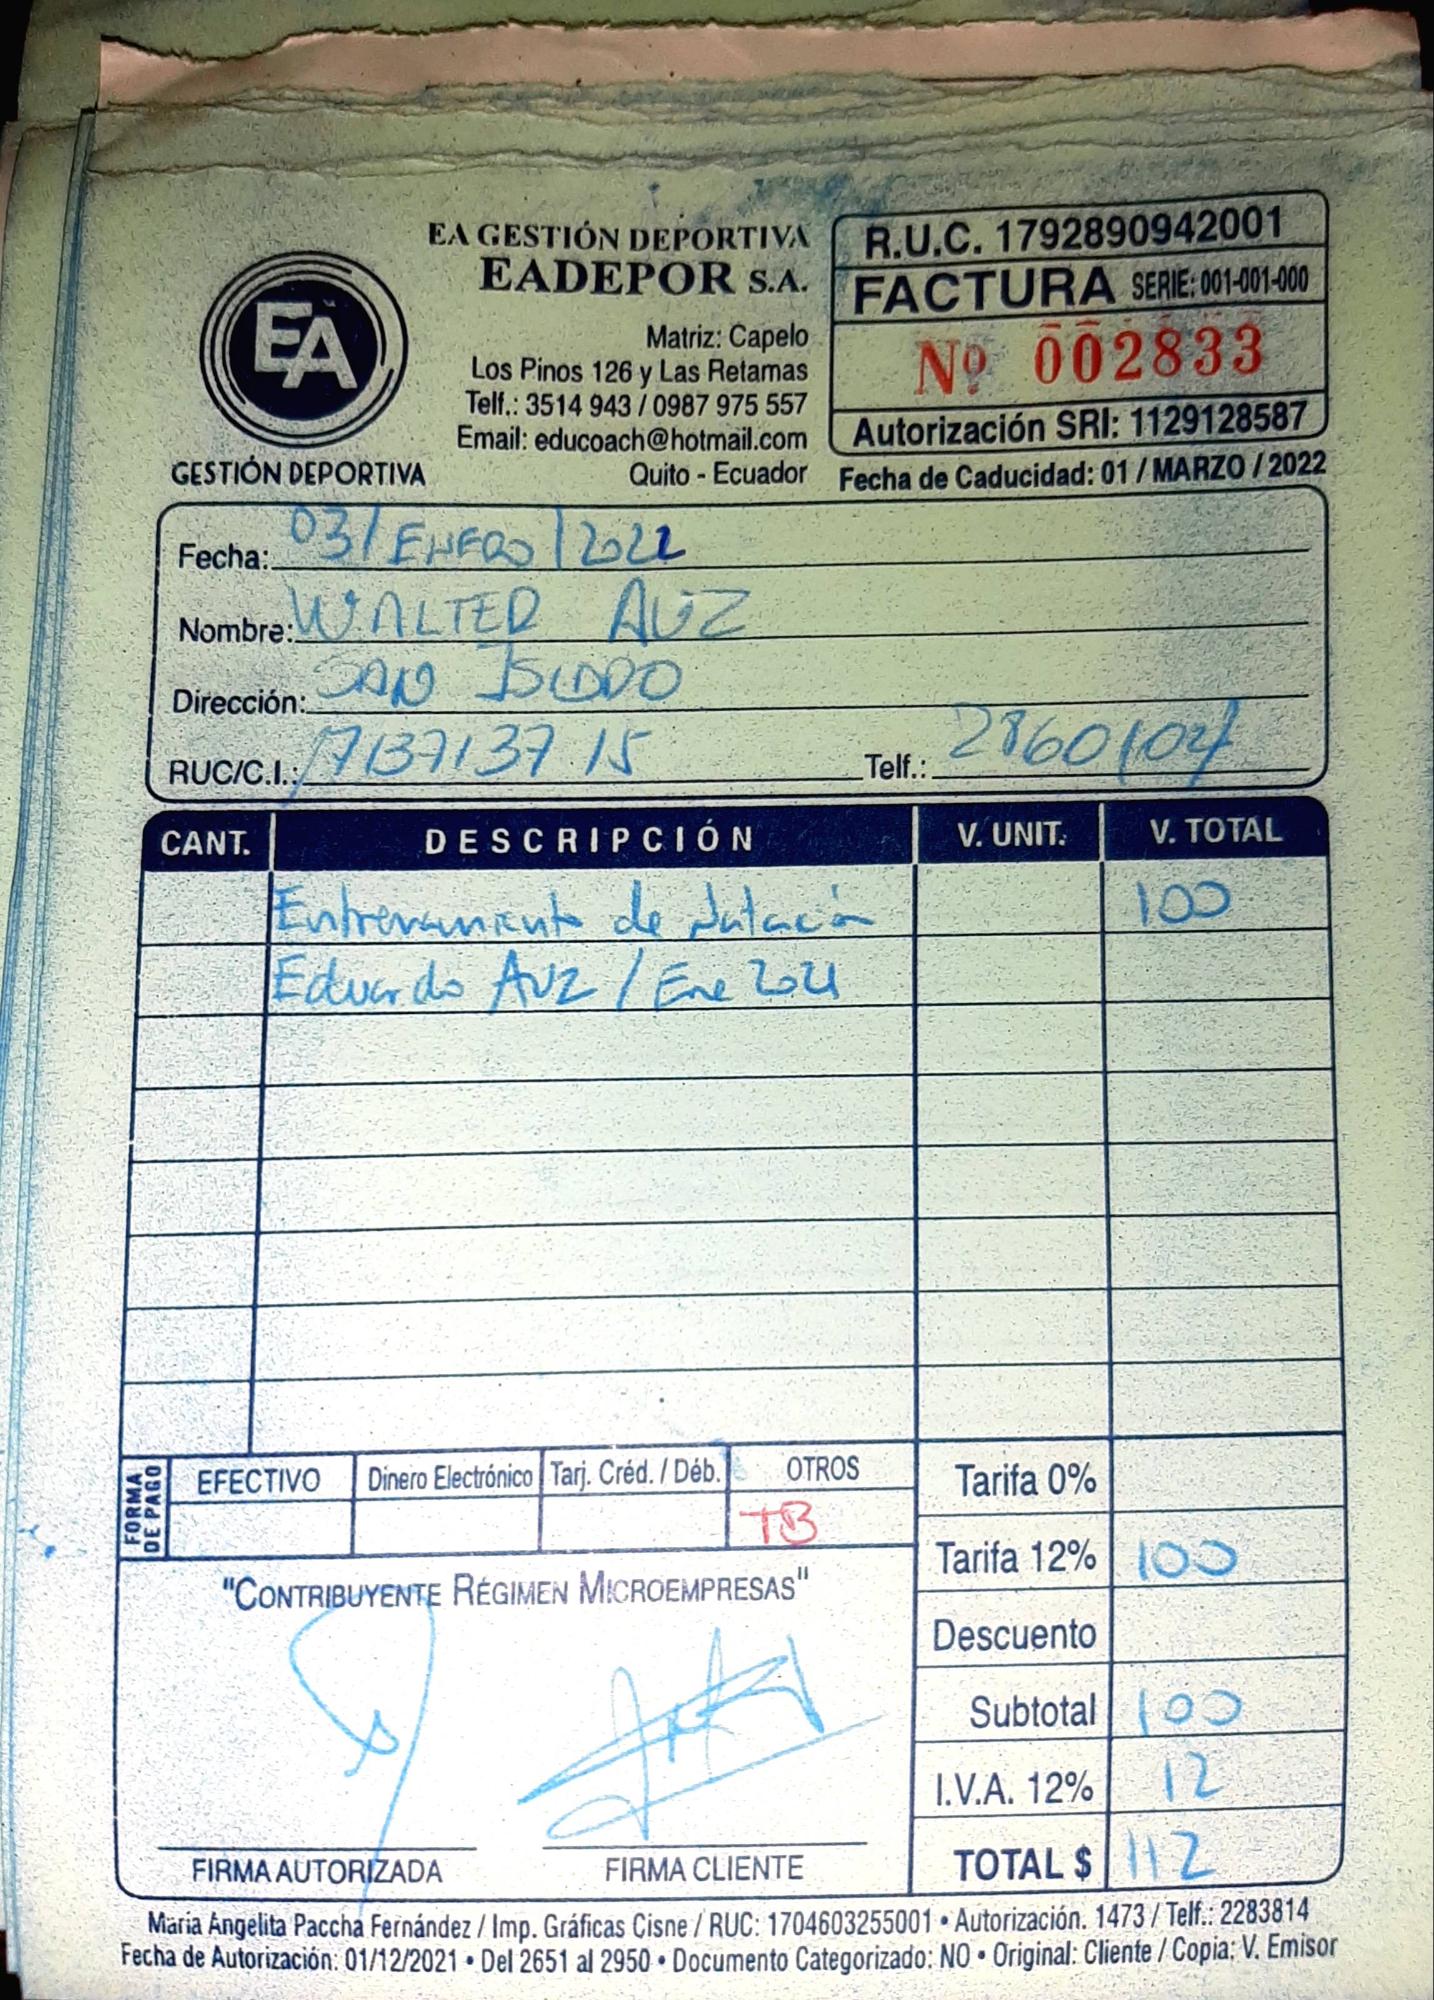 EA GESTIÓN DEPORTIVA
EADEPOR S.A.
Matriz: Capelo
Los Pinos 126 y Las Retamas
Telf.: 3514 943 / 0987 975 557
Email: educoach@hotmail.com
Quito - Ecuador
EA
GESTIÓN DEPORTIVA
R.U.C. 1792890942001
FACTURA SERIE: 001-001-000
Nº 002833
Autorización SRI: 1129128587
Fecha de Caducidad: 01 / MARZO / 2022
Fecha: 03/ENERO/2022
Nombre: WALTER AUZ
Dirección: SAN ISIDRO
RUC/C.I.: 1713713715 Telf.: 2860104
CANT. DESCRIPCIÓN V. UNIT. V. TOTAL
Entrenamiento de Natación 100
Eduardo AUZ / Ene 2021
FORMA DE PAGO
EFECTIVO Dinero Electrónico Tarj. Créd. / Déb. OTROS
TB
Tarifa 0%
Tarifa 12% 100
Descuento
Subtotal 100
I.V.A. 12% 12
TOTAL $ 112
"CONTRIBUYENTE RÉGIMEN MICROEMPRESAS"
FIRMA AUTORIZADA FIRMA CLIENTE
María Angelita Paccha Fernández / Imp. Gráficas Cisne / RUC: 1704603255001 • Autorización. 1473 / Telf.: 2283814
Fecha de Autorización: 01/12/2021 • Del 2651 al 2950 • Documento Categorizado: NO • Original: Cliente / Copia: V. Emisor